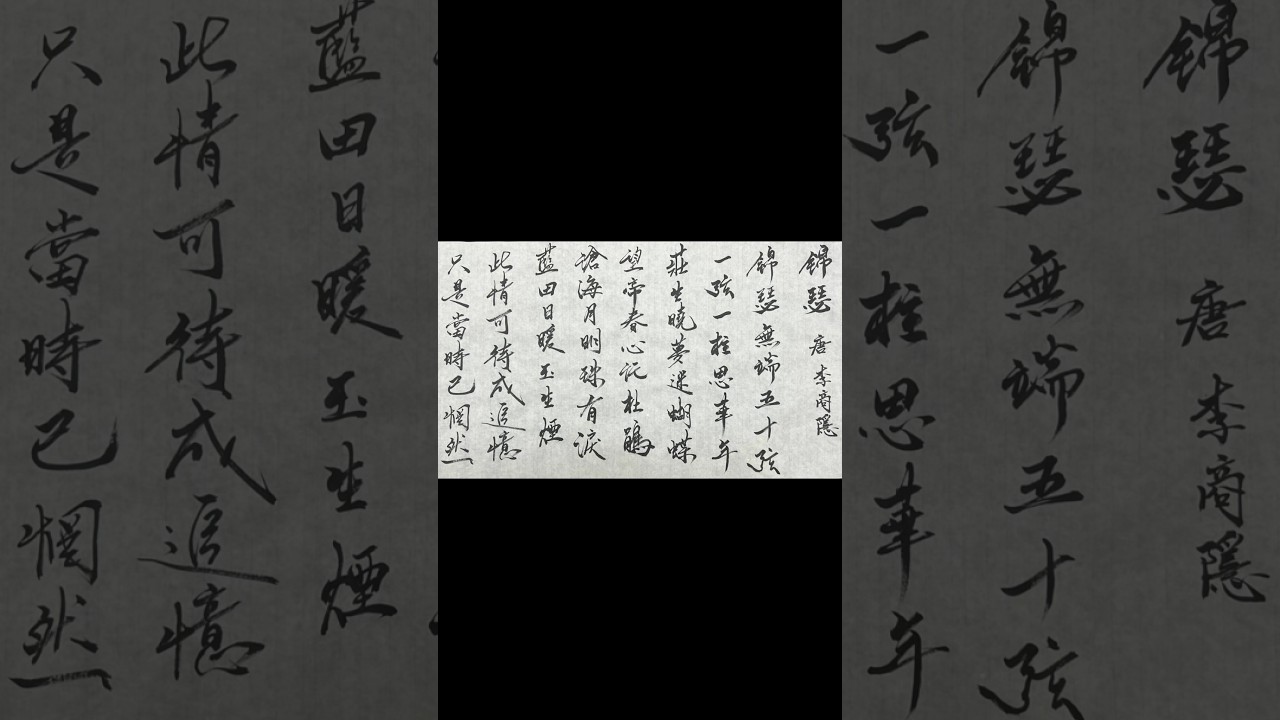 錦瑟 唐 李商隱
錦瑟無端五十弦
一弦一柱思華年
莊生曉夢迷蝴蝶
望帝春心託杜鵑
滄海月明珠有淚
藍田日暖玉生煙
此情可待成追憶
只是當時已惘然